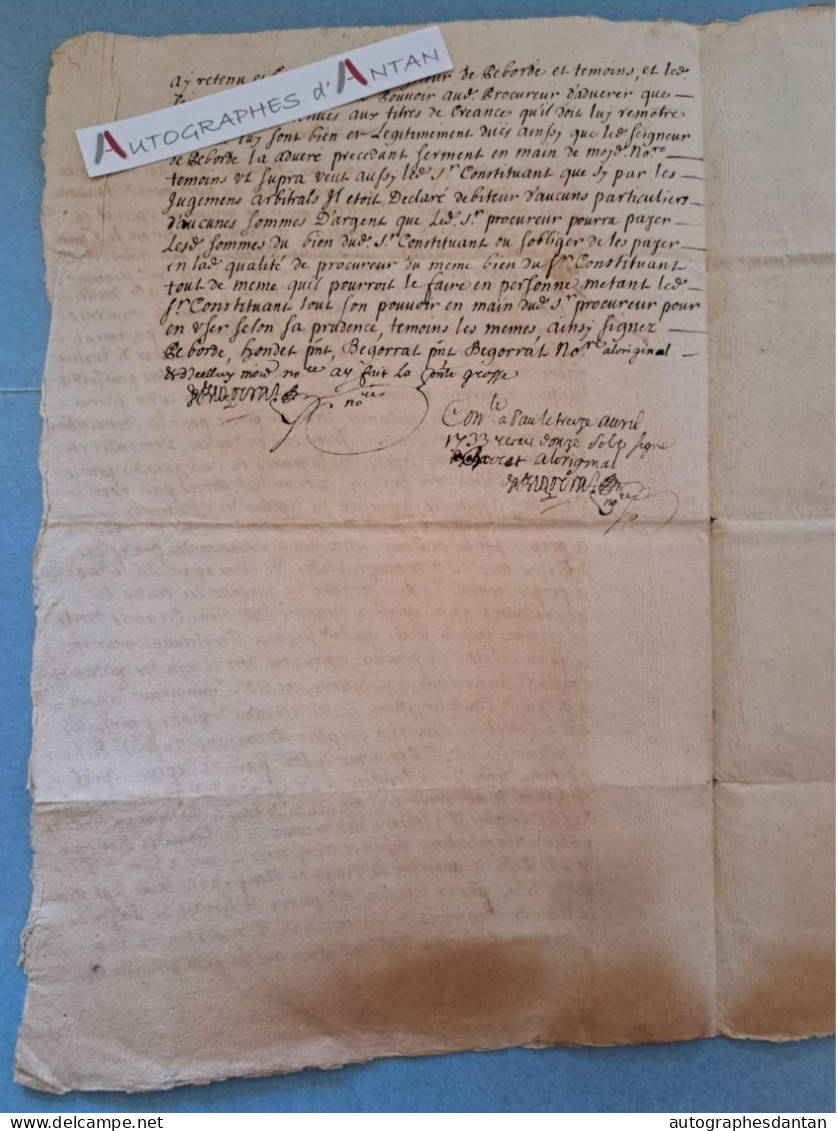 Ay retenu et
AUTOGRAPHES d'ANTAN
de Peborde et temoins, et led.
Pouvoir aud. Procureur d'averer que
aux titres de Creance qu'il doit luy remetre
luy sont bien et Legitimement düés ainsy que led. seigneur
de Peborde la averé precedant serment en main de mojd. No.re
temoins vt supra veut aussy led. S.r Constituant que sy par les
Jugemens arbitrals Jl etoit Declaré debiteur d'aucuns particuliers
d'aucunes sommes D'argent que Led. S.r procureur pourra payer
Lesd. sommes du bien dud. S.r Constituant ou sobliger de les payer
en lad. qualité de procureur du meme bien du S.r Constituant
tout de meme quil pourroit le faire en personne metant led.
S.r Constituant tout son pouvoir en main dud. S.r procureur pour
en vser selon sa prudence, temoins les memes, ainsy signez
Peborde, hondet pnt, Begorrat pnt Begorrat No.re aloriginal
no.re ay fait la grosse
no.res
Con.le a Pau le treize avril
1733 receu douze sols signé
aloriginal
autographesdantan